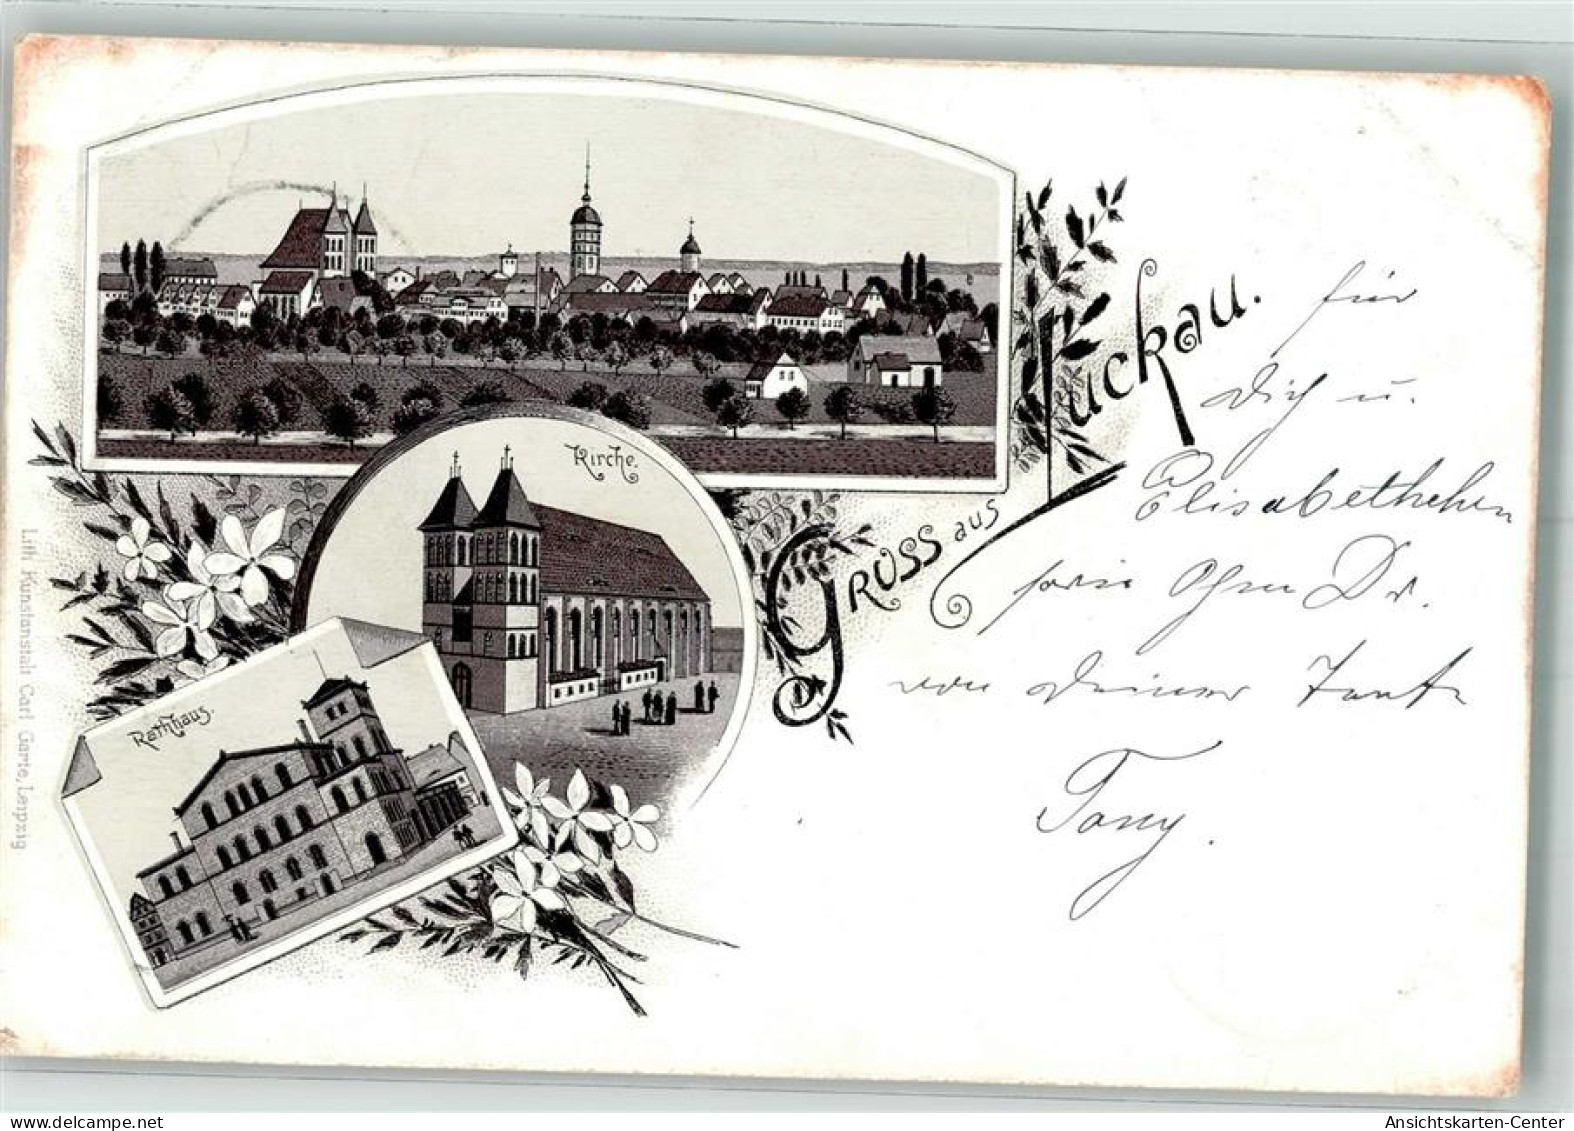 Kirche.
Rathhaus.
Gruss aus Luckau.
für
Dich u.
Elisabethchen
sowie Ohm Dr.
von Deiner Tante
Tony.
Lith. Kunstanstalt Carl Garte, Leipzig
Ansichtskarten-Center